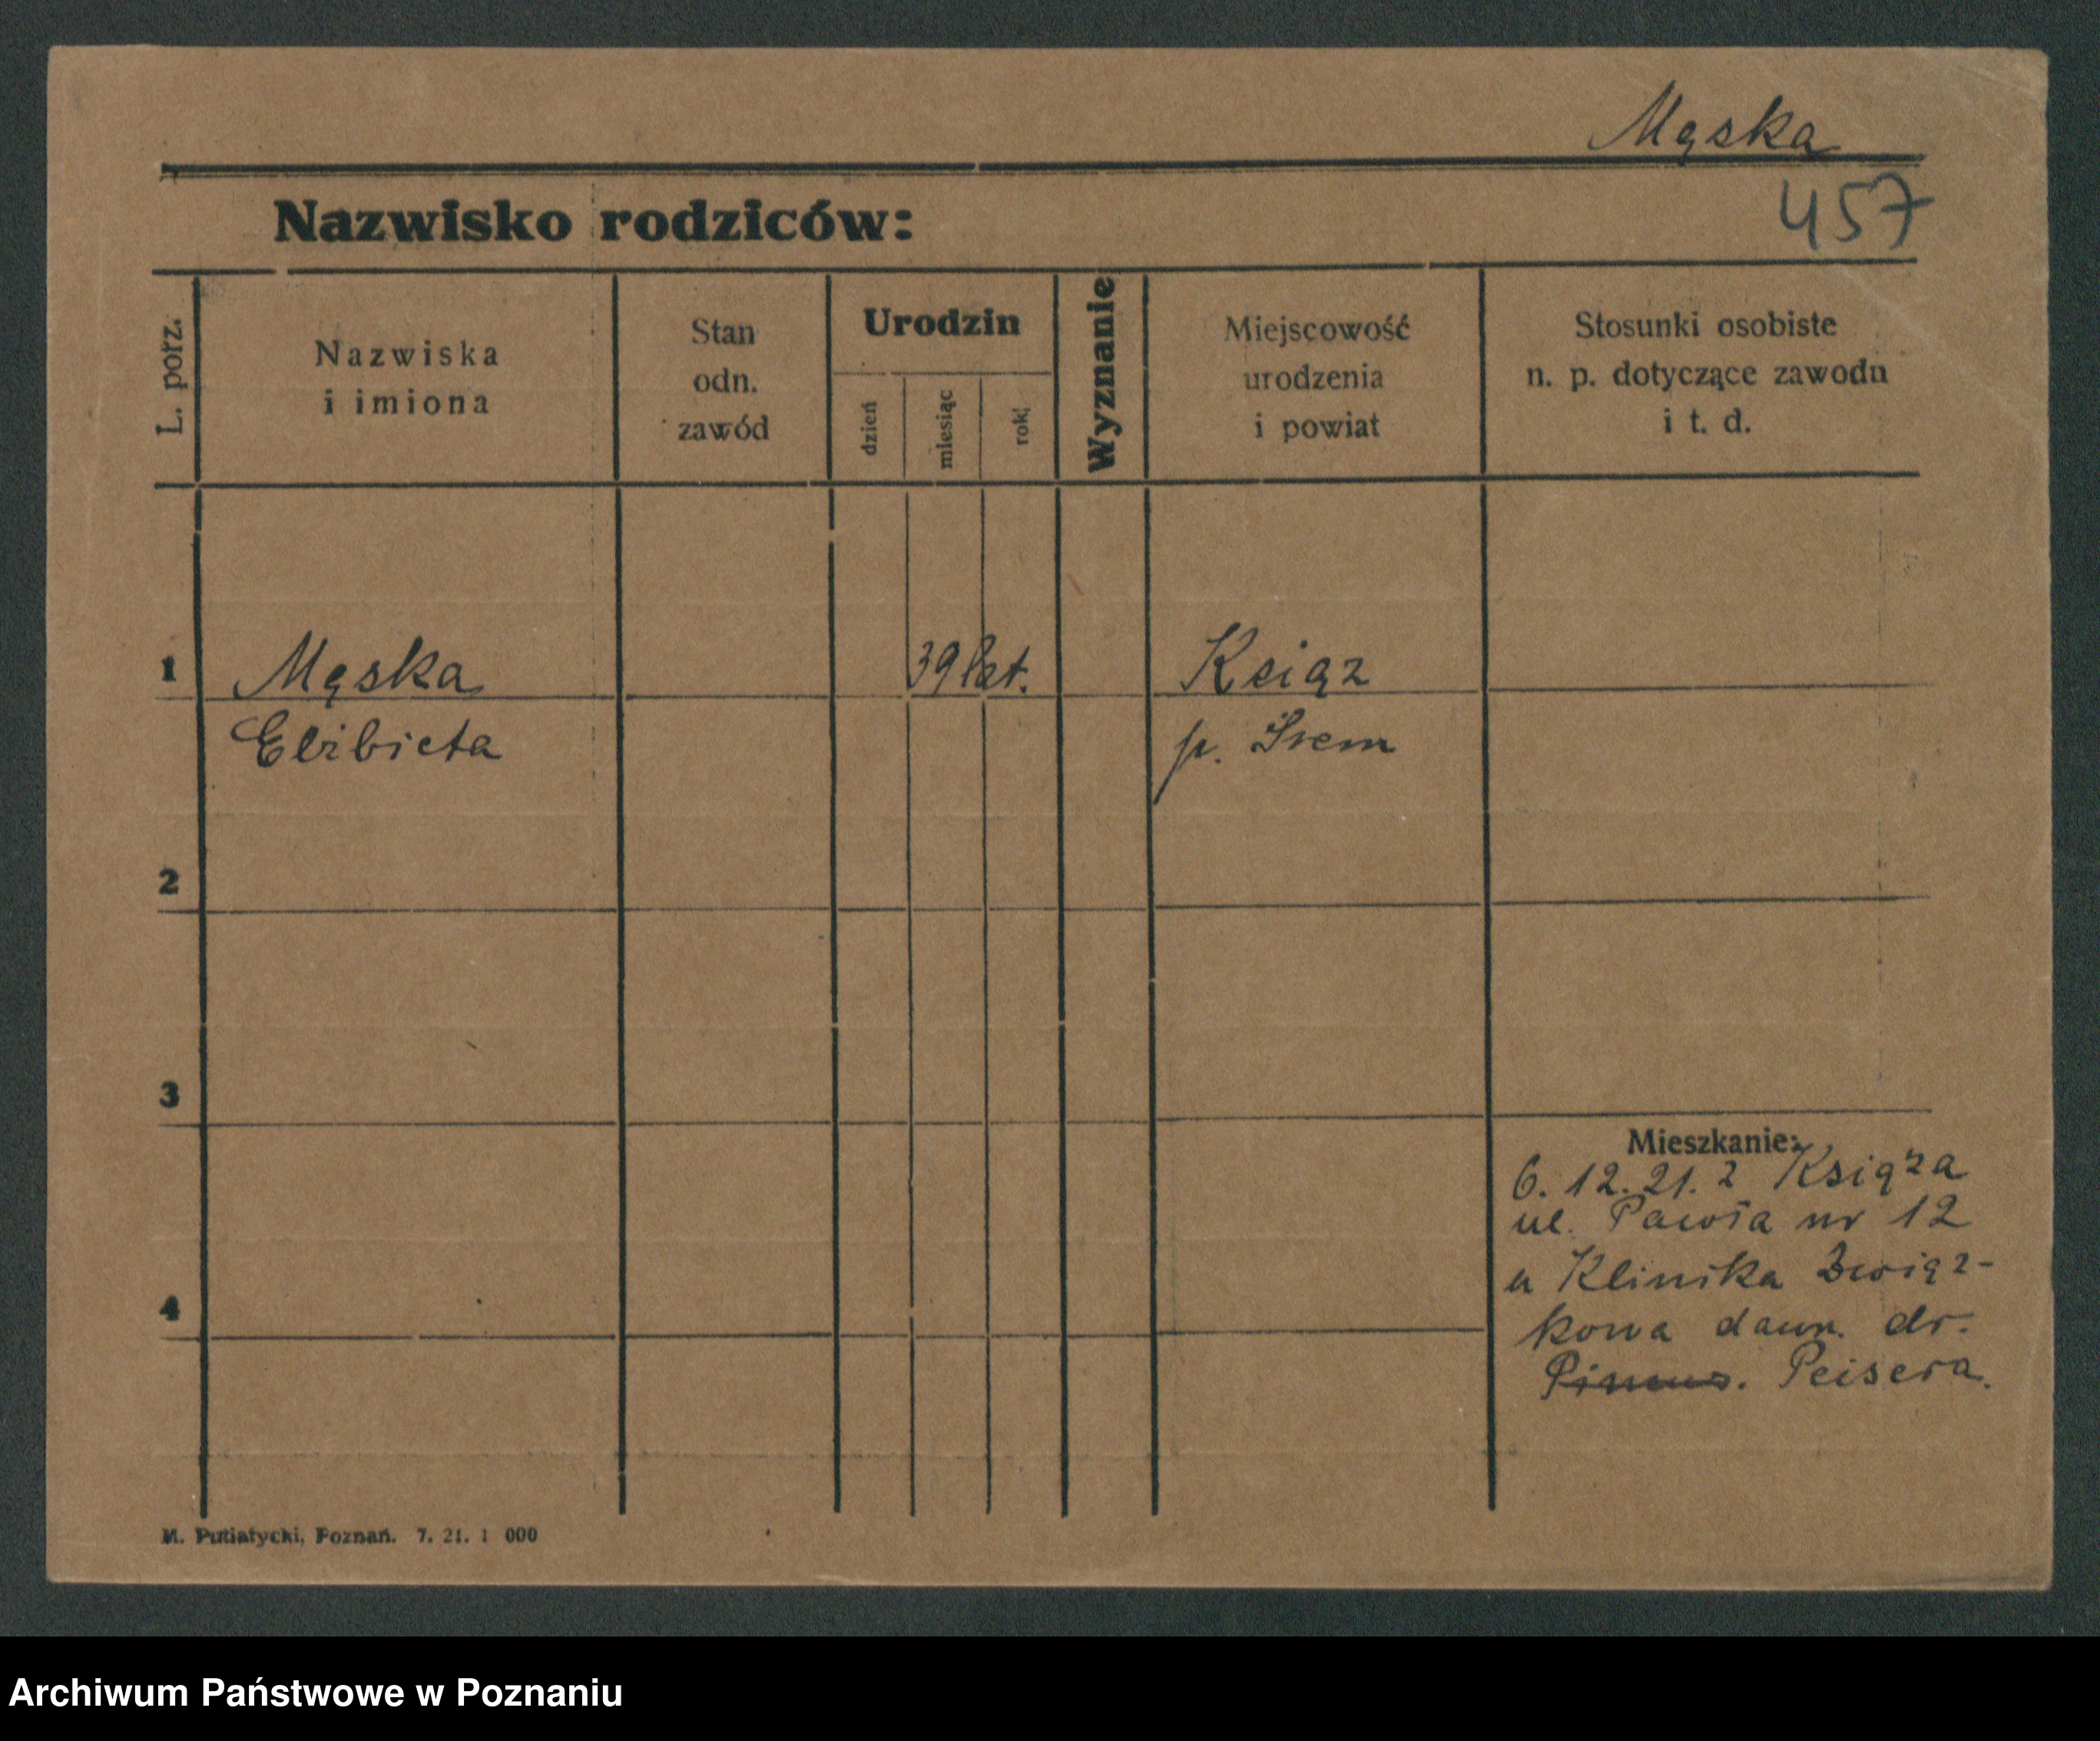 Mąska
457
Nazwisko rodziców:
L. porz.
Nazwiska
i imiona
Stan
odn.
zawód
Urodzin
dzień
miesiąc
rok
Wyznanie
Miejscowość
urodzenia
i powiat
Stosunki osobiste
n. p. dotyczące zawodu
i t. d.
1 Mąska 39 lat. Książ
Elżbieta p. Śrem
2
3
4
Mieszkanie:
6. 12. 21. z Książa
ul. Pawła nr 12
u Klinika Związ-
kowa dawn. dr.
Peisera.
M. Putiatycki, Poznań. 7. 21. 1 000
Archiwum Państwowe w Poznaniu